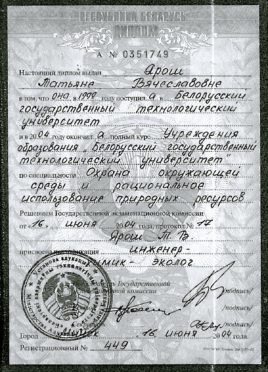 РЕСПУБЛИКА БЕЛАРУСЬ
ДИПЛОМ
А № 0351749
Настоящий диплом выдан Ярош
Татьяне Вячеславовне
в том, что он а в 1999 году поступил а в Белорусский
государственный технологический
университет
и в 2004 году окончил а полный курс Учреждения
образования „Белорусский государственный
технологический университет“
по специальности Охрана окружающей
среды и рациональное
использование природных ресурсов
Решением Государственной экзаменационной комиссии
от 16 июня 2004 года, протокол № 17
Ярош Т. В.
присвоена квалификация инженер-
химик-эколог
Государственной
комиссии
/подпись/
/подпись/
/подпись/
Город 16 июня 2004
Регистрационный № 449